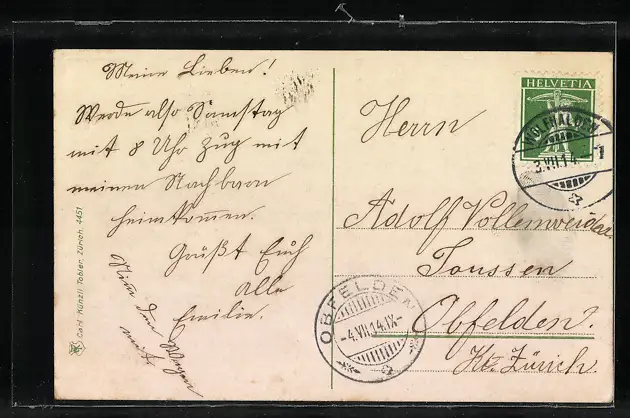 Meine Lieben!
Werde also Samstag
mit 8 Uhr Zug mit
meinen Nachbarn
heimkommen.
Grüßt Euch
Alle
Emilie.
Nim den Wagen
mit.
Carl Künzli-Tobler, Zürich. 4451
HELVETIA
WOLFHALDEN
3.VII.14
1
Herrn
Adolf Vollenweider
Toussen
Obfelden.
Kt. Zürich.
OBFELDEN
-4.VII.14.IX-